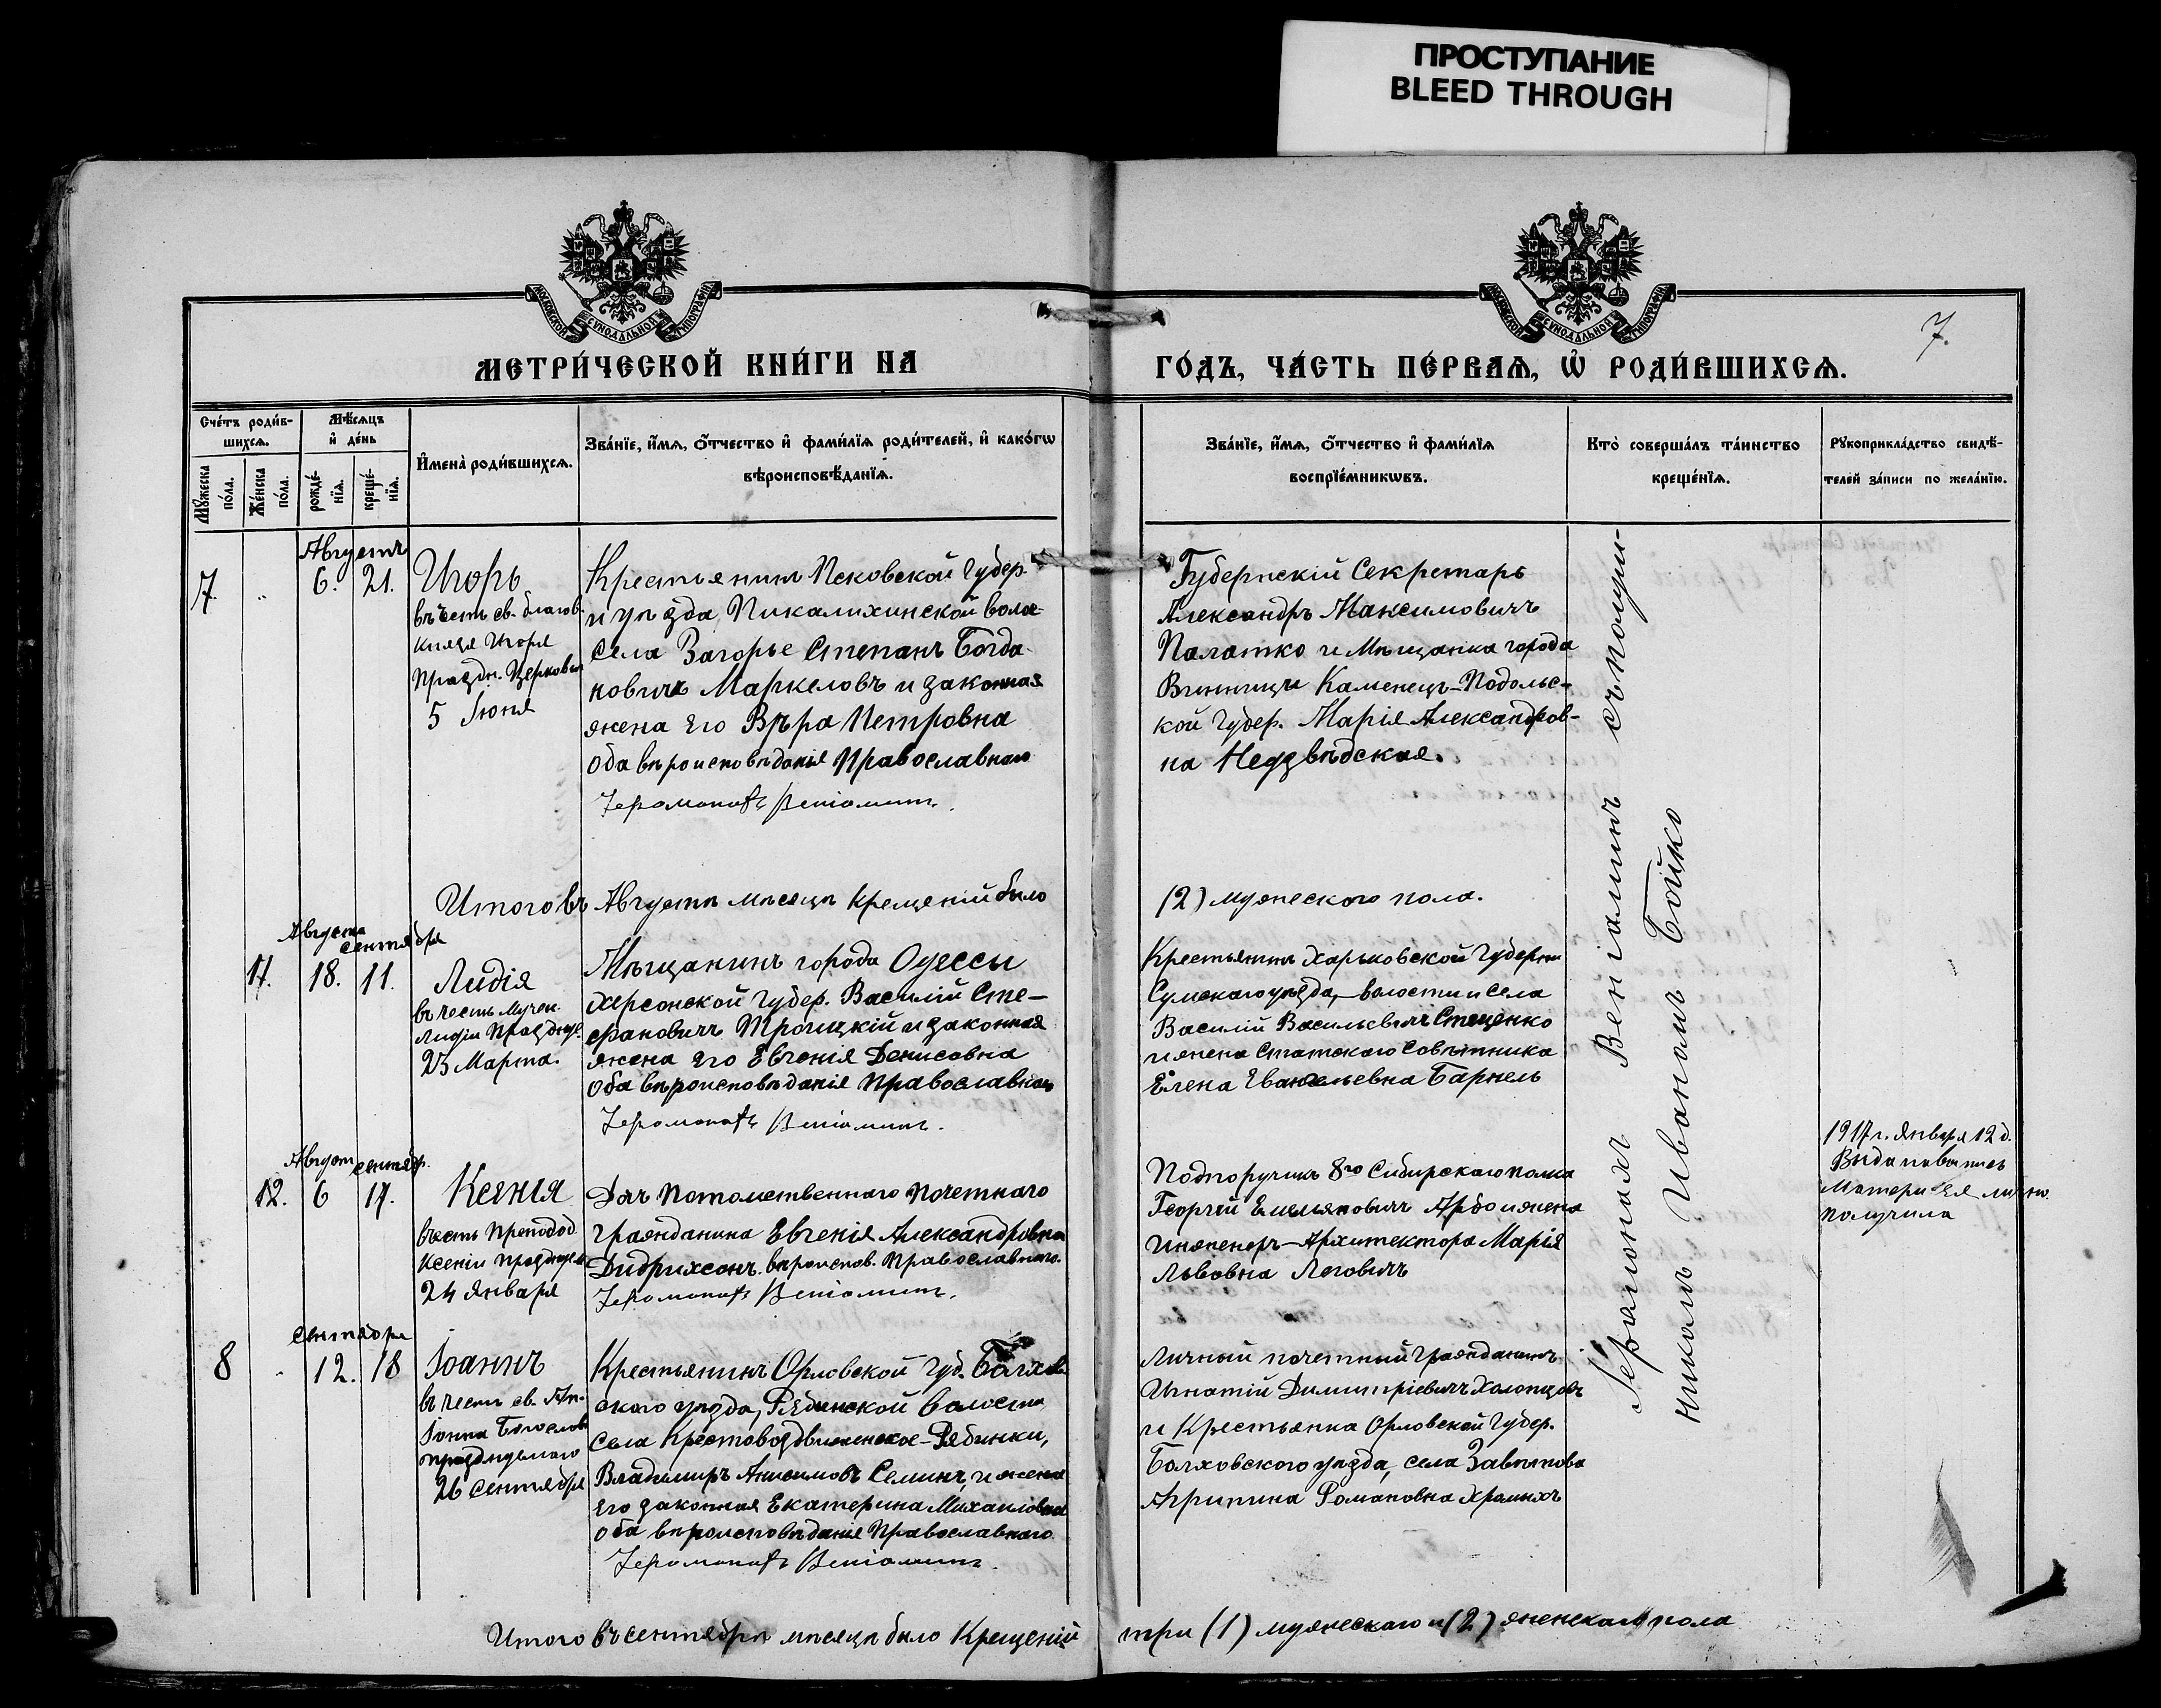 ПРОСТУПАНИЕ
BLEED THROUGH
МОСКОВСКОЙ СѴНОДАЛЬНОЙ ТИПОГРАФІИ
МОСКОВСКОЙ СѴНОДАЛЬНОЙ ТИПОГРАФІИ
7.
МЕТРИ́ЧЕСКОЙ КНИ́ГИ НА
ГО́ДЪ, ЧА́СТЬ ПЕ́РВАѦ, Ѽ РОДИ́ВШИХСѦ.
Сче́тъ роди́в-
шихсѧ.
Мѣ́сѧцъ
и҆ де́нь
Мꙋ́жеска
по́ла.
Же́нска
по́ла.
рожде́-
нїѧ.
креще́-
нїѧ.
И҆мена̀ роди́вшихсѧ.
Зва́нїе, и҆́мѧ, ѻ҆́тчество и҆ фами́лїѧ роди́телей, и҆ како́гѡ
вѣроисповѣ́данїѧ.
Зва́нїе, и҆́мѧ, ѻ҆́тчество и҆ фами́лїѧ
воспрїе́мникѡвъ.
Кто̀ соверша́лъ та́инство
креще́нїѧ.
Рꙋкоприкла́дство свидѣ́-
телей за́писи по жела́нїю.
Августъ
7. " 6. 21.
Игорь
въ честь св. благов.
князя Игоря
праздн. Церковью
5 Іюня
Крестьянинъ Псковской Губер.
и уѣзда, Пикалихинской воло-
села Загорье Степанъ Богда-
новичъ Маркеловъ и законная
жена его Вѣра Петровна
оба вѣроисповѣданія Православнаго
Іеромонахъ Веніаминъ.
Губернскій Секретарь
Александръ Максимовичъ
Палатко и Мѣщанка города
Винницы Каменецъ-Подольс-
кой Губер. Марія Александров-
на Недзвѣдская.
Итого въ Августѣ мѣсяцѣ крещеній было
(2) мужеского пола.
Августа сентября
11. 18. 11.
Лидія
въ честь Мучен.
Лидіи празднуе.
23 Марта.
Мѣщанинъ города Одессы
Херсонской Губер. Василій Сте-
фановичъ Троицкій и законная
жена его Евгенія Денисовна
оба вѣроисповѣданія Православнаго
Іеромонахъ Веніаминъ.
Крестьянинъ Харьковской Губерни
Сумскаго уѣзда, — волости и села
Василій Васильевичъ Стеценко
и жена Статскаго Совѣтника
Елена Евангельевна Барнель
Август сентябр.
12. 6 17.
Ксенія
въ честь Преподод
Ксеніи празднуем
24 Января
Дочь Потомственнаго Почетнаго
гражданина Евгенія Александровна
Дидрихсонъ. вѣроиспов. Православнаго.
Іеромонахъ Веніаминъ.
Подпоручикъ 8го Сибирскаго полка
Георгій Емельяновичъ Арбо и жена
Инженеръ-Архитектора Марія
Львовна
1917 г. Января 12 д.
Выдана выпись
Матери ея лично
получила
сентября
8 12. 18
Іоаннъ
въ честь св. Ап.
Іоана Богослов
празднуемаго
26 Сентября
Крестьянинъ Орловской Губ. Болхов
скаго уѣзда, Рябинской волости
села Крестовоздвиженское-Рябинки,
Владимиръ Анисимовъ Семинъ, и жена
его законная Екатерина Михаиловна
оба вѣроисповѣданія Православнаго
Іеромонахъ Веніаминъ.
Личный почетный гражданинъ
Игнатій Димитріевичъ Холопцовъ
и Крестьянка Орловской Губер.
Болховского уѣзда, села
Агрипина Романовна Хромыхъ
Іеромонахъ Веніаминъ съ псаломщи-
Иваномъ Бойко
Итого въ сентябрѣ мѣсяцѣ было Крещеній три (1) мужескаго и (2) женскаго пола